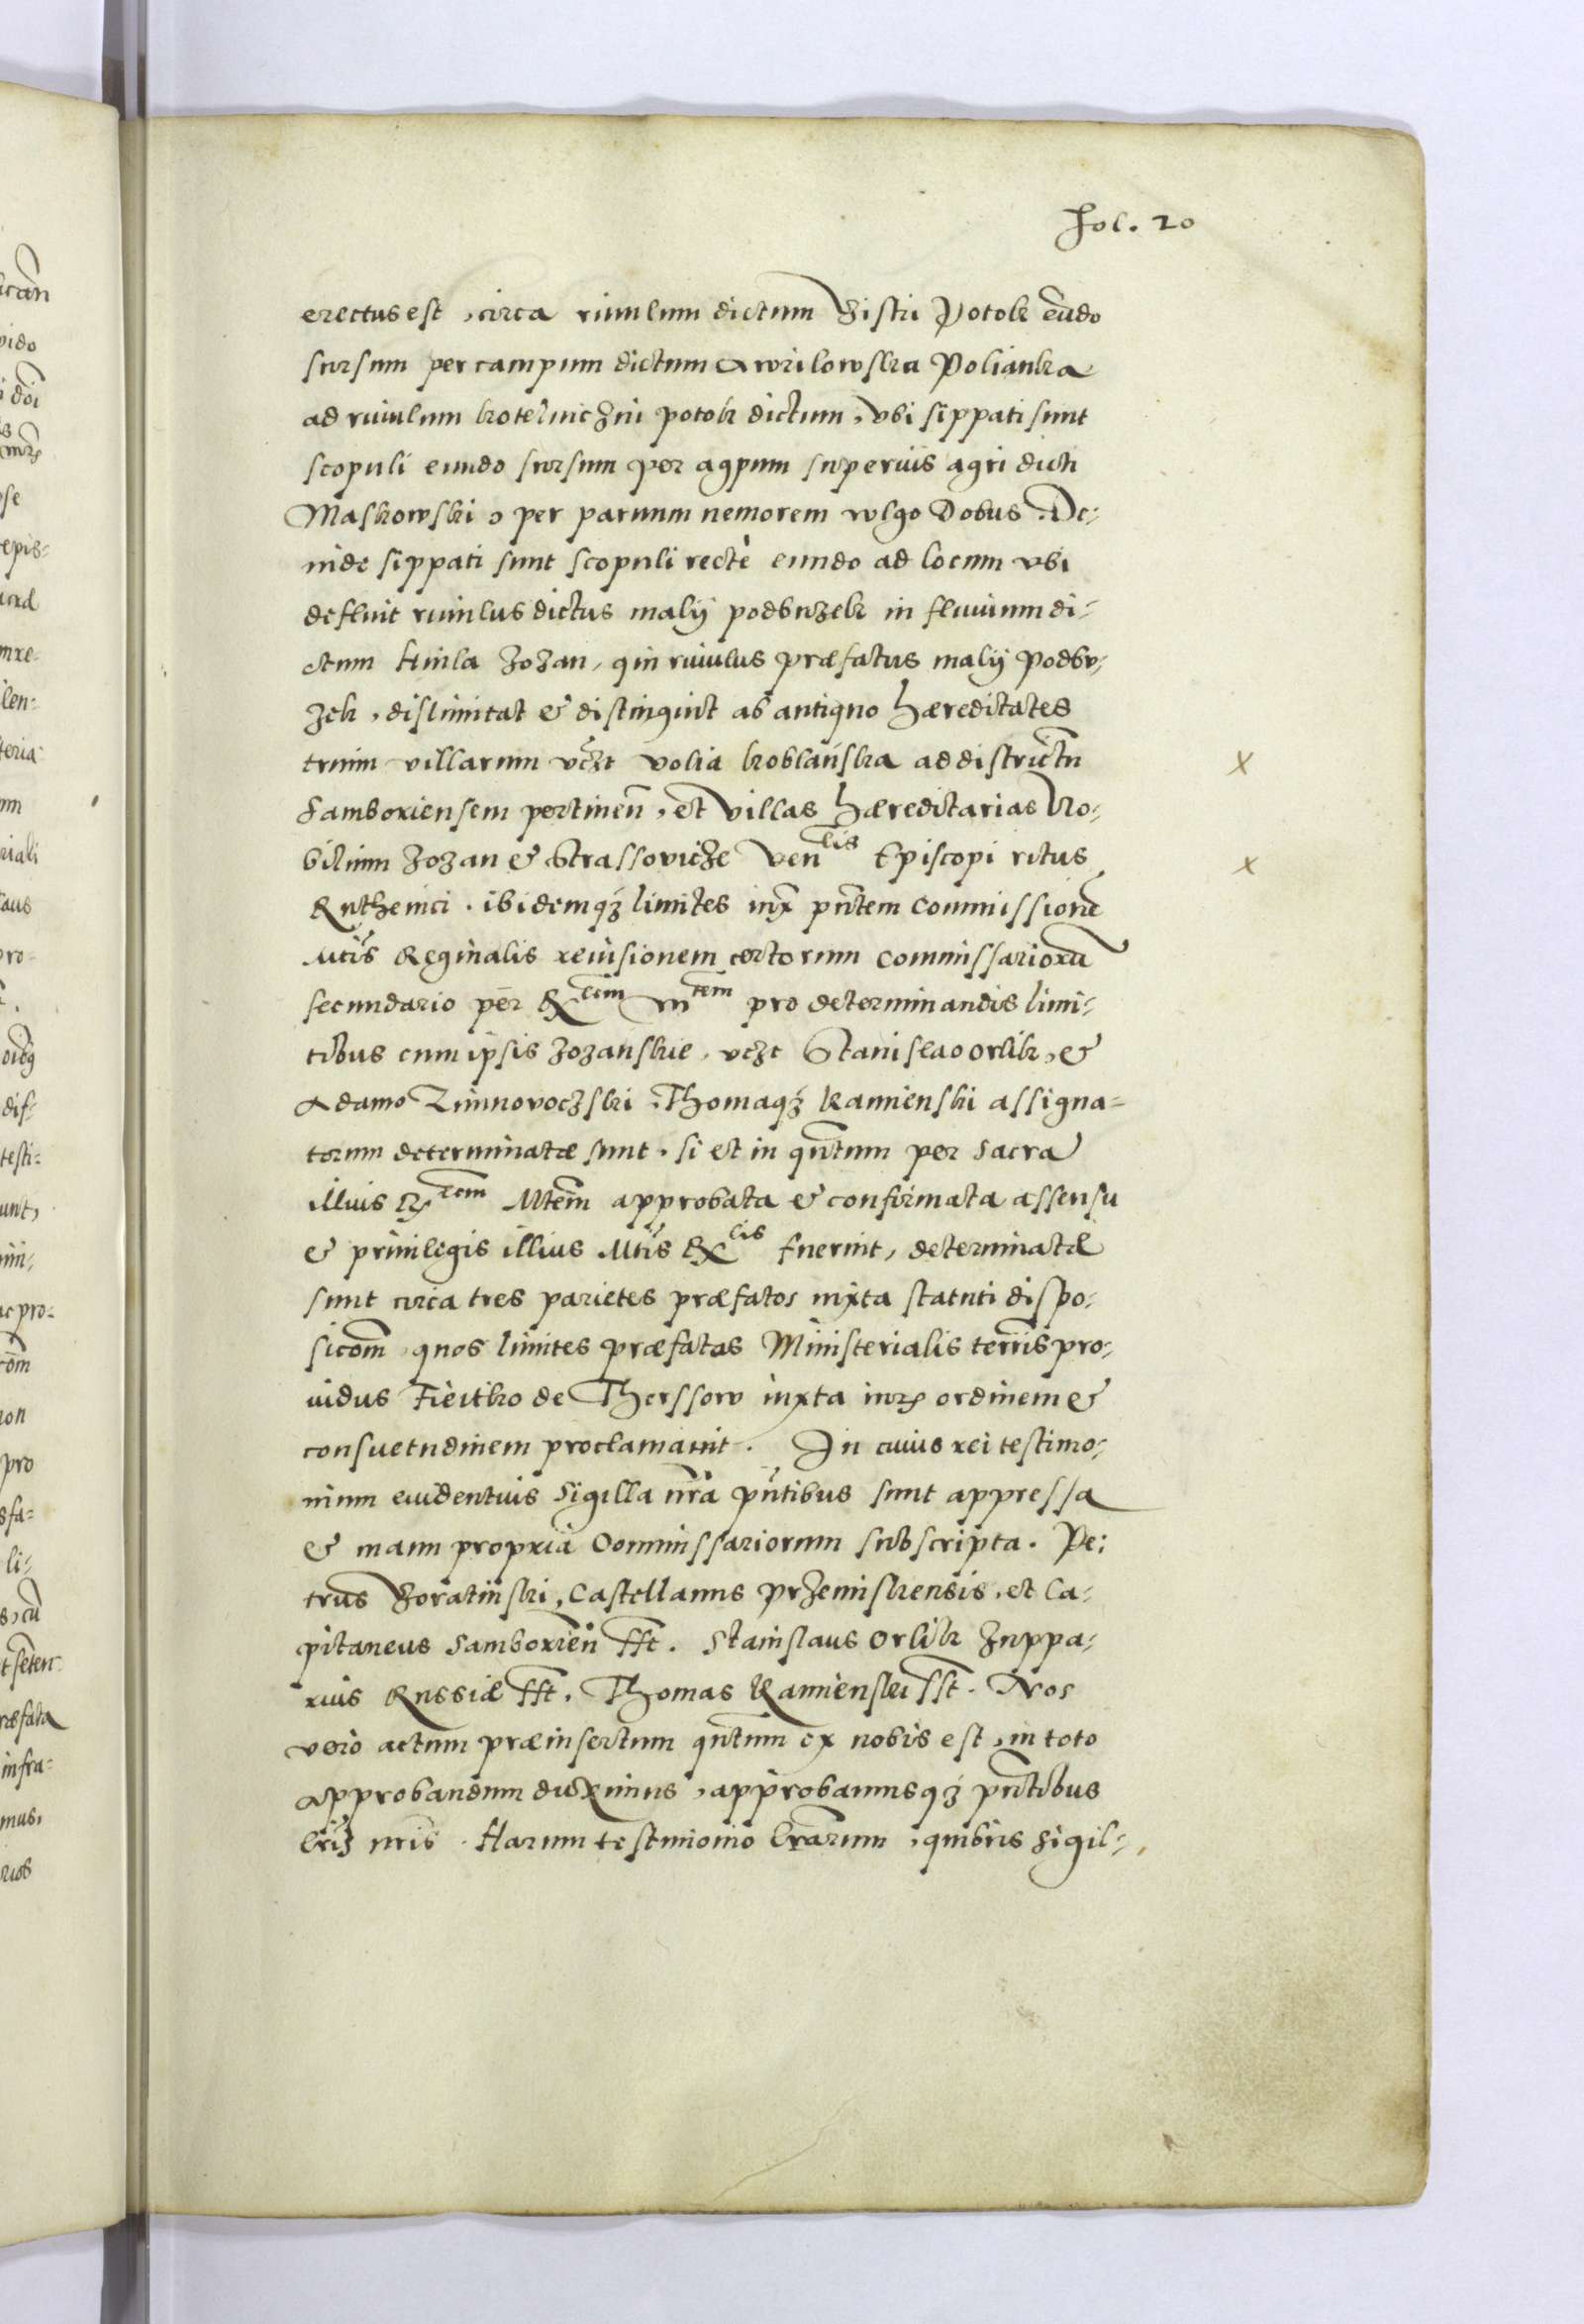 Fol. 20
erectus est, circa riuulum dictum Zistri Potok eūdo
sursum per campum dictum Awrilowska Polianka
ad riuulum kotelniczni potok dictum, vbi sippati sunt
scopuli eundo sursum per agpum superius agri dicti
Maskowski, per paruum nemorem vulgo Dobus. De-
inde sippati sunt scopuli rectè eundo ad locum vbi
defluit riuulus dictus malÿ podbuzek in fluuium di-
ctum Huila Zozan, qui riuulus præfatus malÿ Podbu-
zek, dislimitat & distinguit ab antiquo hæreditates
trium villarum vczt volia koblańska ad districtū
Samboriensem pertineñ, et villas hæreditarias No-
bilium Zozan & Strassovicze Venlis Episcopi ritus
Rutheinci. ibidemqz limites iux pñtem commissionē
Mtis Reginalis reuisionem certorum commissariorū
secundario per Rcim Mtem pro determinandis limi-
tibus cum ipsis Zozanskie, vczt Stanislao Orlik, &
Adamo Zimnovoczski, Thomaqz Kamienski assigna-
torum determinatæ sunt, si et in qntum per Sacra
illius Rrem Mtem approbata & confirmata assensu
& priuilegis illius Mtis Rlis fuerint, determinatæ
sunt circa tres parietes præfatos iuxta statuti dispo-
sicom, quos limites præfatas Ministerialis terris pro-
uidus Fiedko de Therssow iuxta iurs ordinem &
consuetudinem proclamauit. In cuius rei testimo-
nium euidentius sigilla nra pntibus sunt appressa
& manu propria Commissariorum subscripta. Pe-
trus Zoratinski, Castellanus przemiskensis, et Ca-
pitaneus Samborien sst. Stanislaus Orlik Zuppa-
rius Russiæ sst. Thomas Kamienski sst. Nos
vero actum præinsertum qntum ex nobis est, in toto
approbandum duximus, approbamusqz pntibus
lris nris. Harum testimonio lrarum, quibus sigil-
x
x